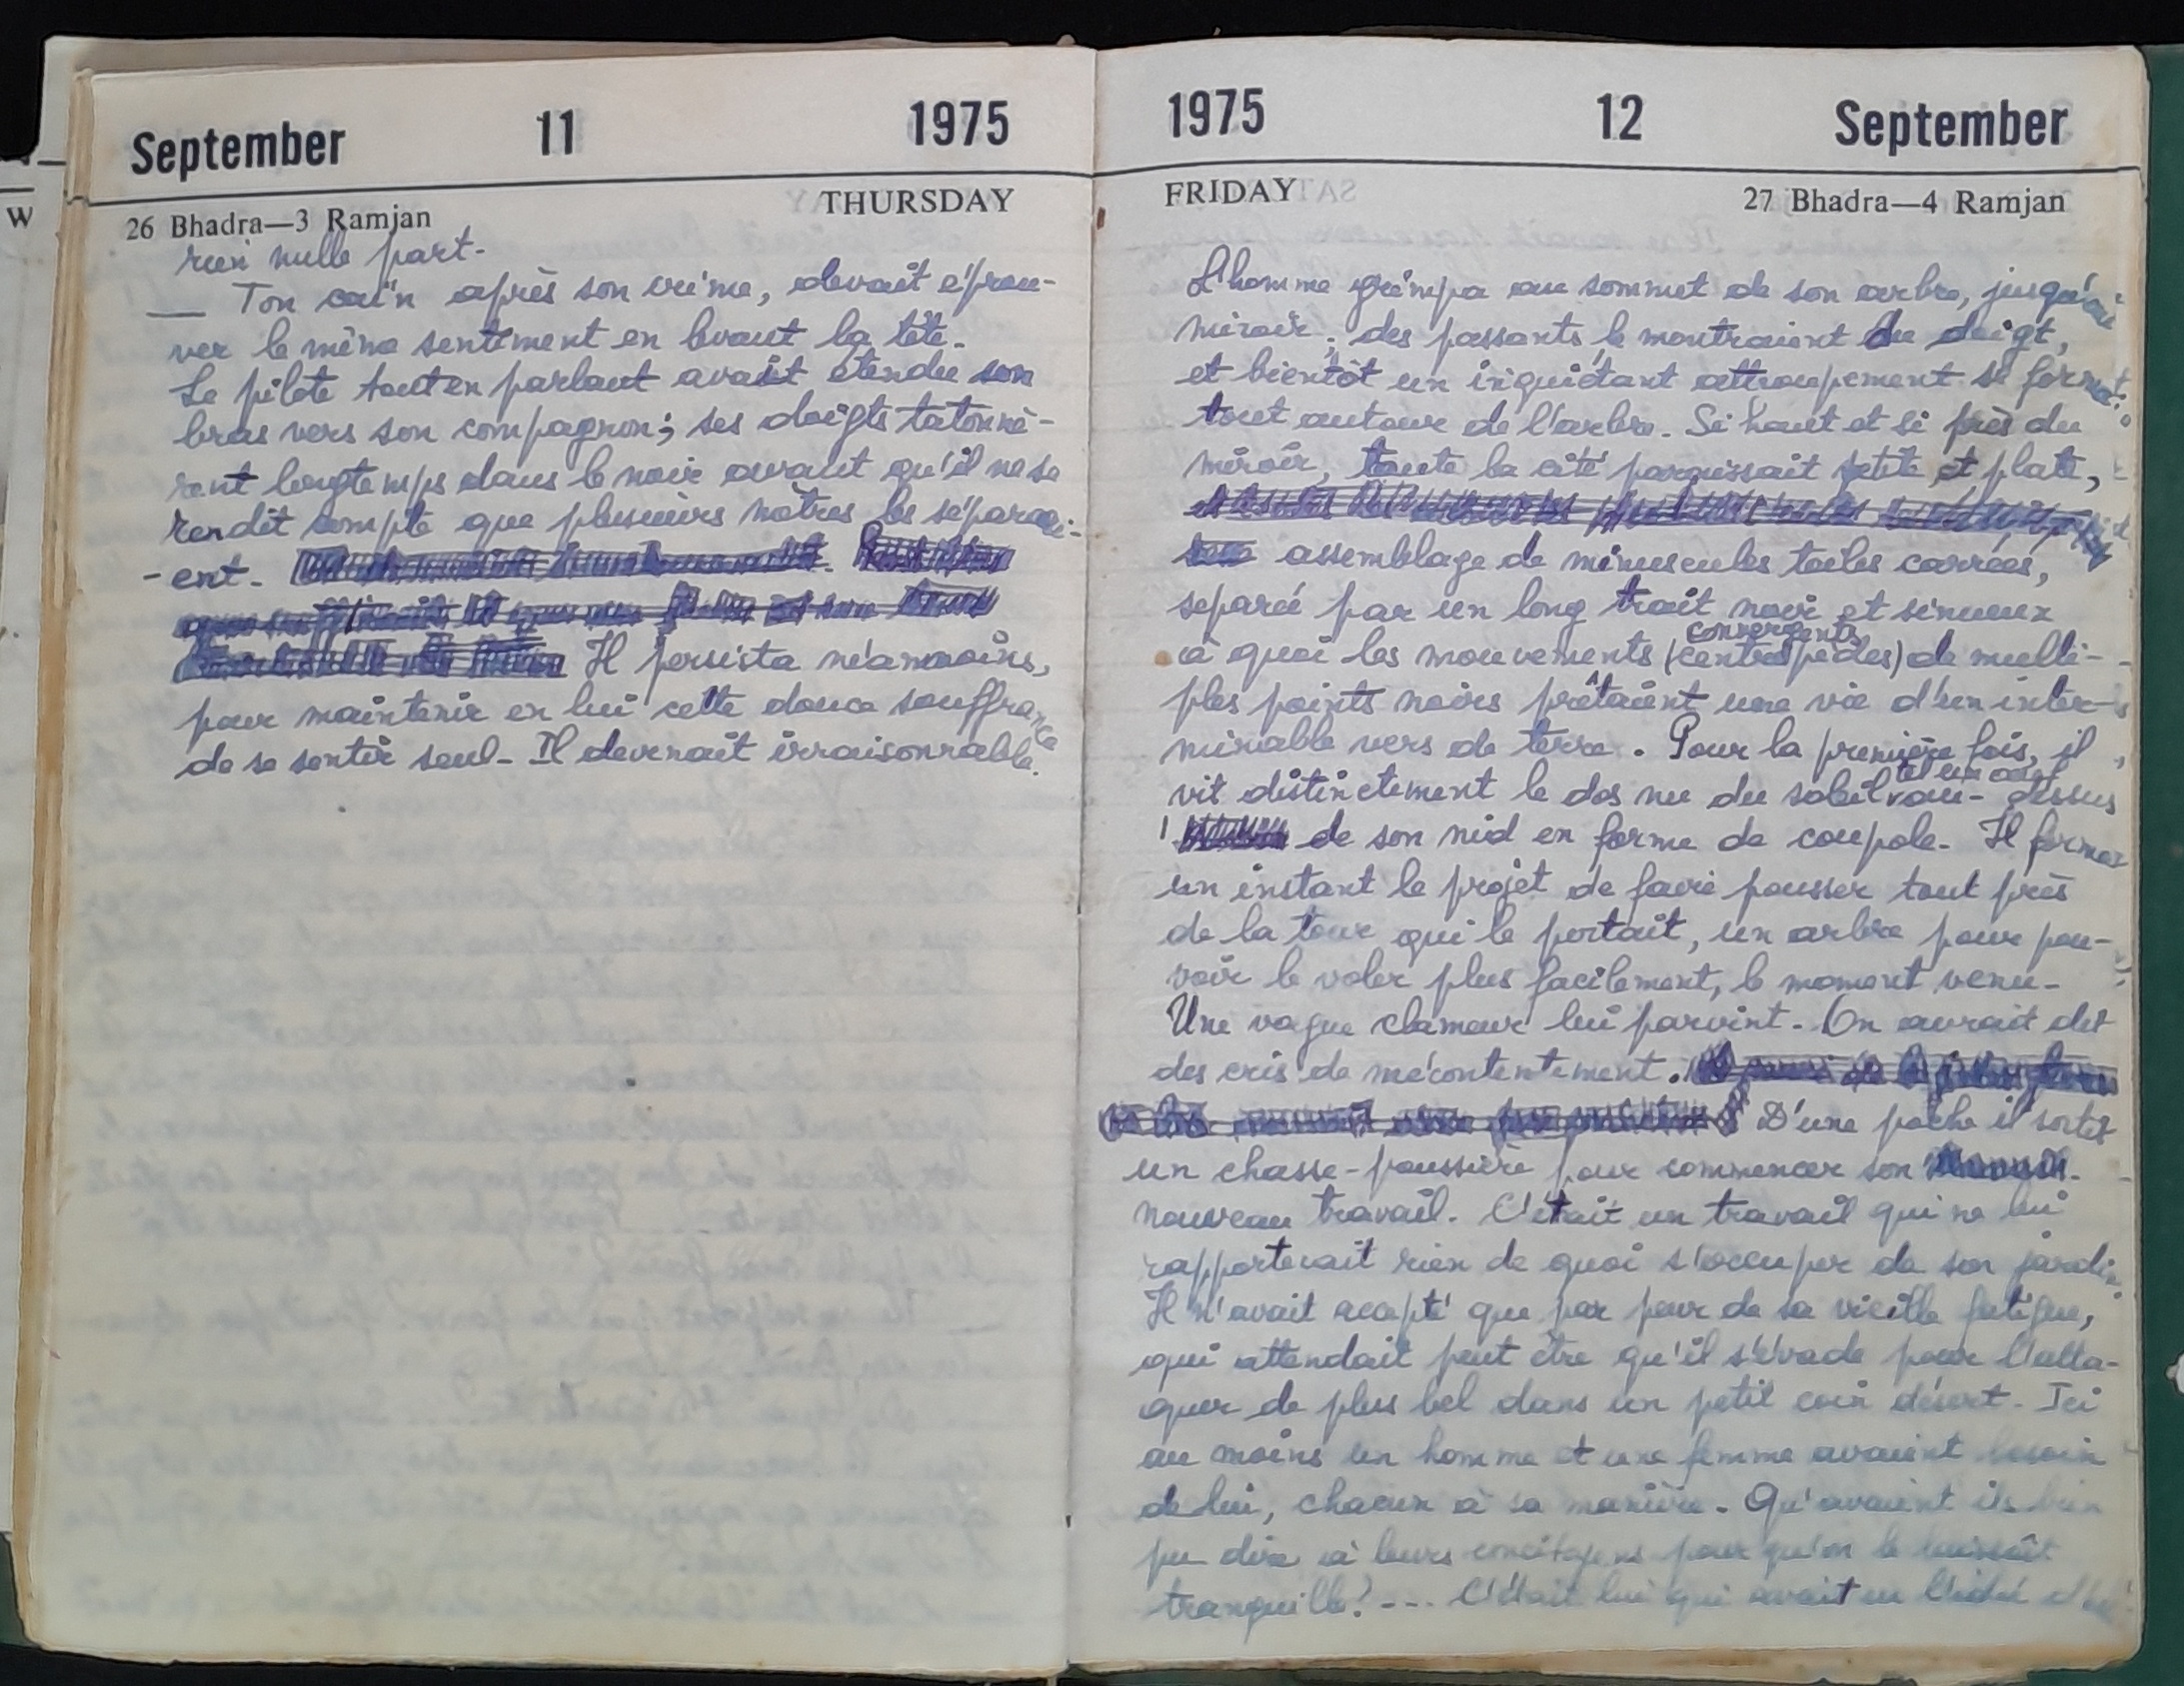 September 11 1975
THURSDAY
26 Bhadra—3 Ramjan
rien nulle part-
— Ton caïn après son crime, devait éprou-
ver le même sentiment en levant la tête.
Le pilote tout en parlant avait étendu son
bras vers son compagnon; ses doigts tatonnè-
rent longtemps dans le noir avant qu'il ne se
rendit compte que plusieurs mètres les séparai-
-ent.
Il persista néanmoins,
pour maintenir en lui cette douce souffrance
de se sentir seul- Il devenait irraisonnable.
1975 12 September
FRIDAY
27 Bhadra—4 Ramjan
L'homme grimpa au sommet de son arbre, jusqu'au
miroir; des passants le montraient du doigt,
et bientôt un inquiétant attroupement se format
tout autour de l'arbre. Si haut et si près du
miroir, toute la cité paraissait petite et plate,
assemblage de minuscules toiles carrées,
separée par un long trait noir et sinueux
convergents
à quoi les mouvements (centripèdes) de multi-
ples points noirs prêtaient une vie d'un inter-
minable vers de terre. Pour la première fois, il
tel un oeuf
vit distinctement le dos nu du soleil au-dessus
de son nid en forme de coupole- Il forma
un instant le projet de faire pousser tout près
de la tour qui le portait, un arbre pour pou-
voir le voler plus facilement, le moment venu-
Une vague clameur lui parvint- On aurait dit
des cris de mécontentement.
D'une poche il sortit
un chasse-poussière pour commencer son
nouveau travail. C'était un travail qui ne lui
rapporterait rien de quoi s'occuper de son jardin.
Il n'avait accepté que par peur de sa vieille fatigue,
qui attendait peut être qu'il s'évade pour l'atta-
quer de plus bel dans un petit coin désert- Ici
au moins un homme et une femme avaient besoin
de lui, chacun à sa manière- Qu'avaient ils bien
pu dire à leurs concitoyens pour qu'on le laissât
tranquille?--- C'était lui qui avait eu l'idée